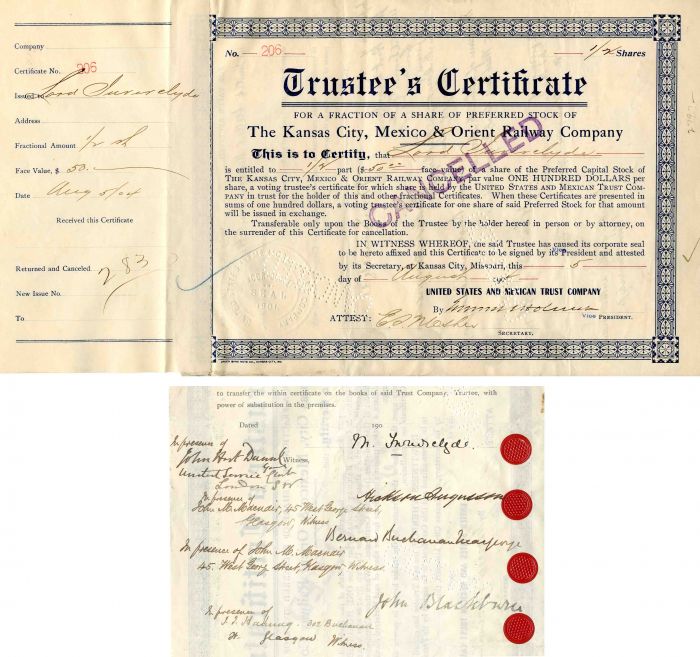 Company
Certificate No. 206
Issued to Lord Inverclyde
Address
Fractional Amount 1/2 sh
Face Value, $ 50.
Date Aug 5/04
Received this Certificate
Returned and Canceled
283
New Issue No.
To
No. 206 1/2 Shares
Trustee's Certificate
FOR A FRACTION OF A SHARE OF PREFERRED STOCK OF
The Kansas City, Mexico & Orient Railway Company
This is to Certify, that Lord Inverclyde
is entitled to 1/2 part ($ 50 face value) of a share of the Preferred Capital Stock of
THE KANSAS CITY, MEXICO & ORIENT RAILWAY COMPANY, par value ONE HUNDRED DOLLARS per
share, a voting trustee's certificate for which share is held by the UNITED STATES AND MEXICAN TRUST COM-
PANY in trust for the holder of this and other fractional Certificates. When these Certificates are presented in
sums of one hundred dollars, a voting trustee's certificate for one share of said Preferred Stock for that amount
will be issued in exchange.
Transferable only upon the Books of the Trustee by the holder hereof in person or by attorney, on
the surrender of this Certificate for cancellation.
CANCELLED
IN WITNESS WHEREOF, the said Trustee has caused its corporate seal
to be hereto affixed and this Certificate to be signed by its President and attested
by its Secretary, at Kansas City, Missouri, this 5
day of August 190
UNITED STATES AND MEXICAN TRUST COMPANY
By
Vice PRESIDENT.
ATTEST:
SECRETARY.
to transfer the within certificate on the books of said Trust Company, Trustee, with
power of substitution in the premises.
Dated 190
In presence of
John Hart Dunn
Witness,
United Service Club
London SW
M. Inverclyde.
In presence of
John M. Macnair, 45 West George Street,
Glasgow, Witness
Hickson Fergusson
Bernard Buchanan
In presence of John M. Macnair
45 West George Street, Glasgow, Witness.
John Blackburn
In presence of
302 Buchanan
St Glasgow Witness.